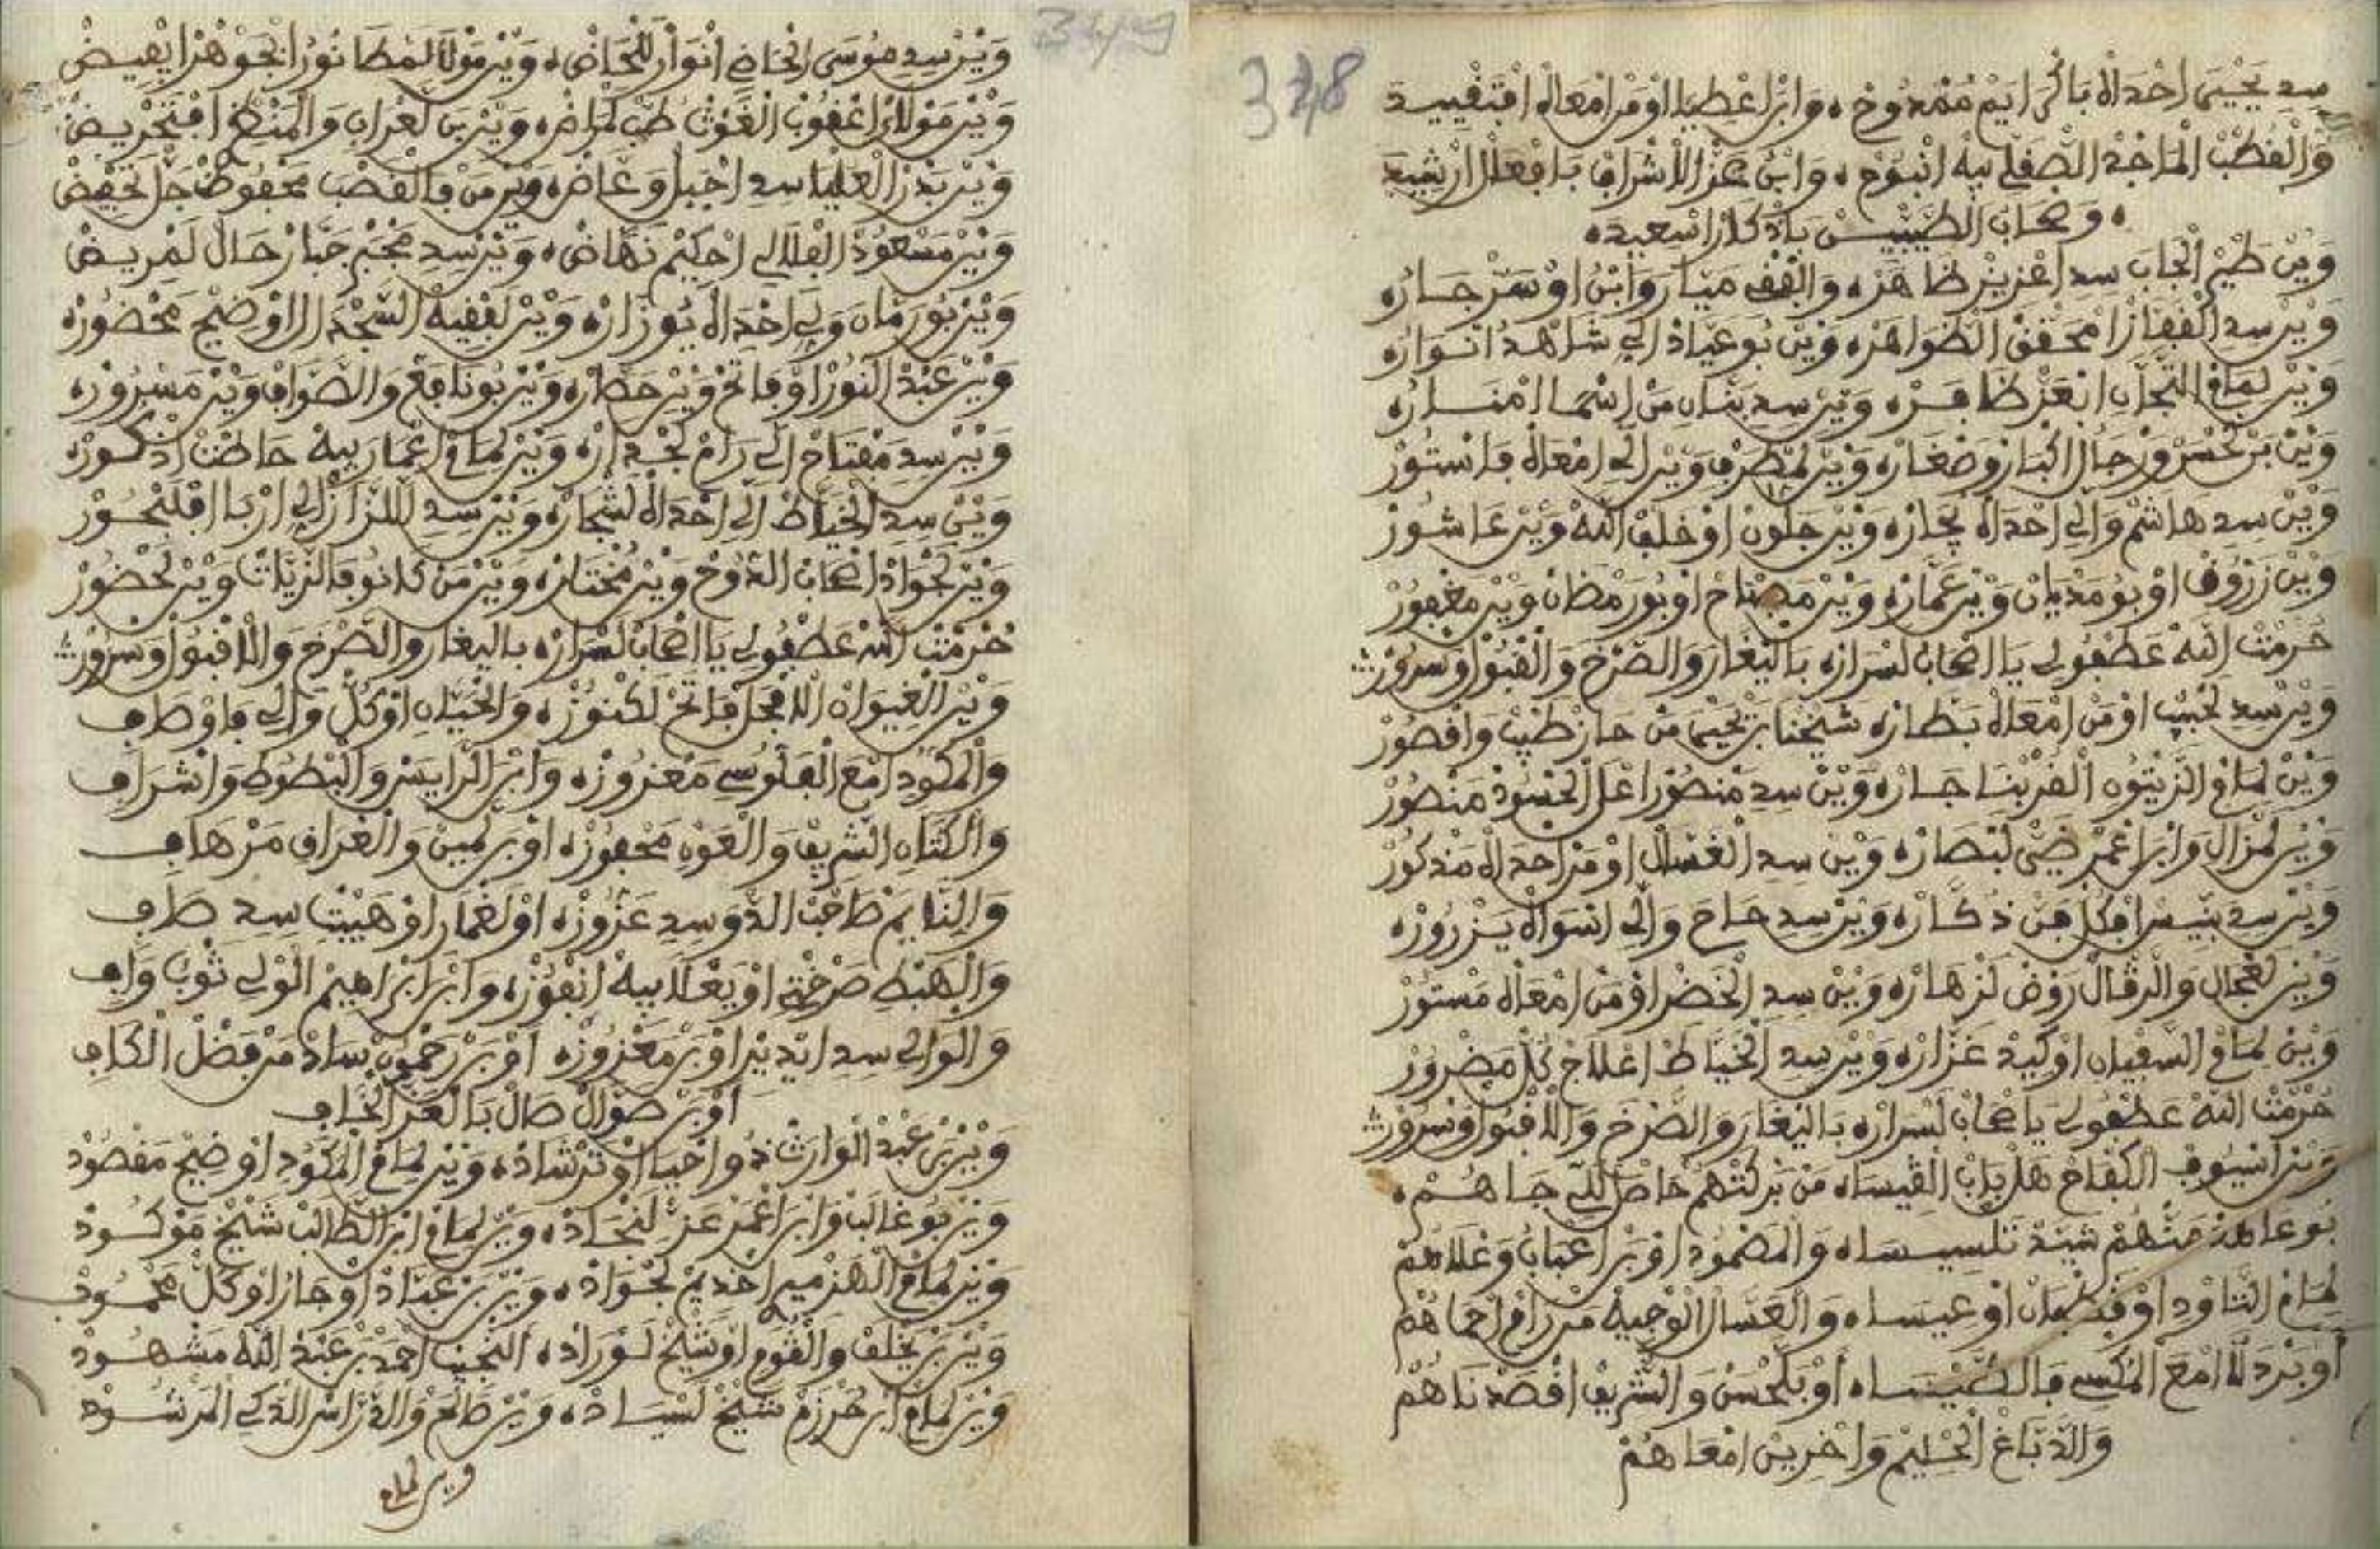 348
سد يحيى احداه باكرايم ممدوح ٥ وابن اعطيا اومن امعاه افتفييد
والقطب الماجد الصقلي بيه انبوح ٥ وابن عز الاشراف بافعال ارشيد
٥ وصحاب الطيبيسن باذكار اسعيد ٥
وين طير الجاب سد اعزيز ظاهره والقف مينار وابن اوسر جاره
وين سد الغفار امحقق الظواهره وين بوعياد الي شاهد انواره
وين لمام التجان انعز ظافره وين سد بنان من اسما امناره
وين بن لحسن ورجال اكبار وصغاره وين لمطرف وين الي امعاه فاستور
وين سد هاشم والي احداه بجاره وين جلون اوخلف الله وين عاشور
وين زروق اوبومديان وين عماره وين مصباح اوبورمظان وين مغفور
حرمت الله عطفولي يا اصحاب لسراره باليغار والصرخ والقبول وسرور
وين سد لحبيب اومن امعاه بطاره شيخنا بن يحيى من حاز طيب واقصور
وين لمام الزيتون القربنا جاره وين سد منصور اعل الحسود منصور
وين لمزال وابن اعمر ضي لبصاره وين سد الغسال اومن احداه مذكور
وين سد بنيس افكل فن ذكاره وين سد حاح والي اسواه يزروره
وين لفجال والرقال روض لزهاره وين سد الخضر اومن امعاه مستور
وين لمام السفيان اوكيد غزاره وين سد الخياط اعلاج كل مضرور
حرمت الله عطفولي يا صحاب لسراره باليغار والصرخ والاقبول وسرور
وين اسيوف الكفاح هل باب القيسا ٥ من بركتهم حاصل للي جاهم ٥
بوعاهد منهم شيد تلسيسا ٥ والمضمود اوبن اعباب وغلاهم
لمام التاود اوقطبان اوعيسا ٥ والعسال الوجيه من رام احماهم
اوبردلا امع المكسي فالطيسا ٥ اوبلحسن والشريف اقصدناهم
والدباغ الحليم واخرين امعاهم
349
وين سد موسى الحاض انوار للحاض ٥ وين مولا لمطا نور الجوهر ايفيض
وين مولا ايعقوب الغوث طب لمراض ٥ وين بن لعراب والمنطر افتحريض
وين بدر العليا سد احبيل وعاض ٥ وين من فالقصب محفوظ جل تخفيض
وين مسعود الفلالي احكيم نهاض ٥ وين سد مجبر جبار حال لمريض
وين بورمان ولي احداه يوزاره وين لفقيه السجد الاوضيح محضوره
وين عبد النور اوفاتح وين حضاره وين بونافع والصواف وين مسروره
وين سد مفتاح الي رام لجداره وين لمام اعمار بيه حاطت اذكوره
وين سد الخياط الي احداه لشجاره وين سد للزاز الي اربا افلنجور
وين لجواد اصحاب الدوح وين مختاره وين من كانو فالزيات وين لحضور
حرمت الله عطفولي يا اصحاب لسراره باليغار والصرخ والاقبول وسرور
وين الغيوان الافجل فاتح لكنوزه والخيان اوكل والي فاوطاف
والمكود امع الفلوسي معزوزه وابن الرايس والبطوط واشراف
والكتان الشريف والعون محفوزه اوبن لمين والغراف من هاف
والنايم طاحب الدوسد عزوزه اولغمار اوهيبت سد طاف
والهبط صرختي اويعلا بيه انفوزه وابن ابراهيم الولي ثوب واف
والوالي سد ايدير اوبن معزوزه اوبن رحمون ساد من فضل الكاف
اوبن صوال صال بالعز الخاف
وين بن عبد الوارث ذو احيا اوترشاده وين لمام المكود اوضيح مقصود
وين بوغالب وابن اعمر عز لنجاده وين لمام ابن الطالب شيخ موكود
وين لمام الهزمير احديم لجواده وين بن عباد اوجار اوكل محمود
وين بن يخلف والقوم اوشيخ لوراده النجيب احمد بن عبد الله مشهود
وين لمام ابن حرزم شيخ لسياده وين طلع والدراس الذكي المرشود
وين لمام